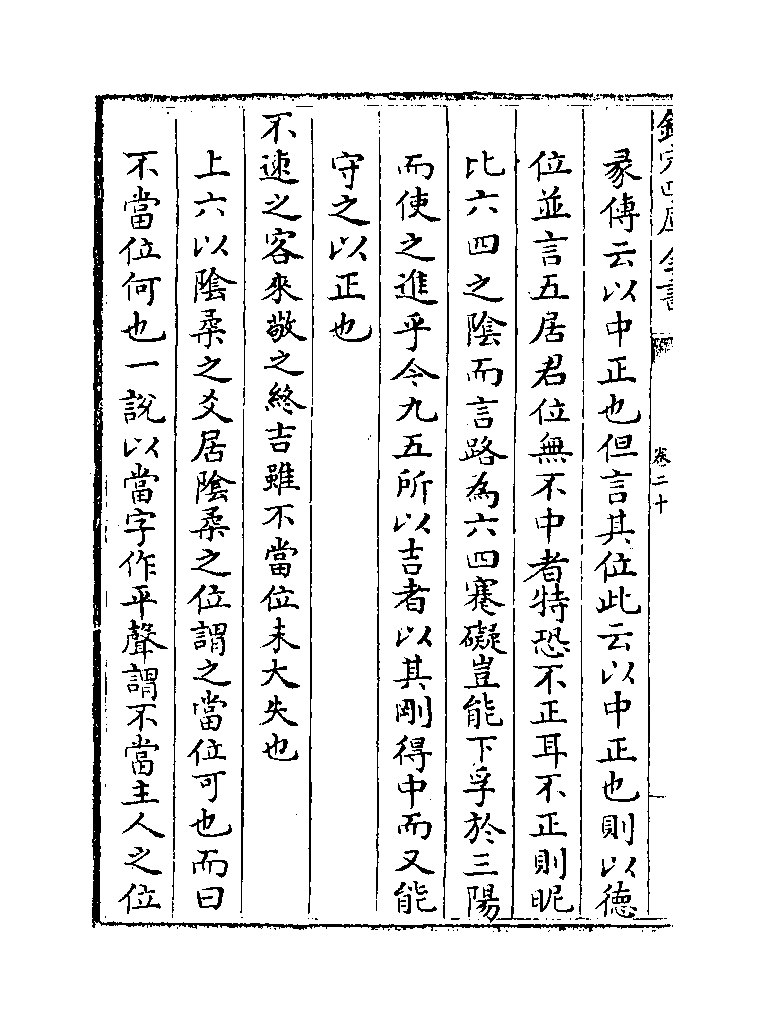 欽定四庫全書
卷二十
彖傳云以中正也但言其位此云以中正也則以德
位並言五居君位無不中者特恐不正耳不正則昵
比六四之陰而言路為六四蹇礙豈能下孚於三陽
而使之進乎今九五所以吉者以其剛得中而又能
守之以正也
不速之客來敬之終吉雖不當位未大失也
上六以陰柔之爻居陰柔之位謂之當位可也而曰
不當位何也一說以當字作平聲謂不當主人之位